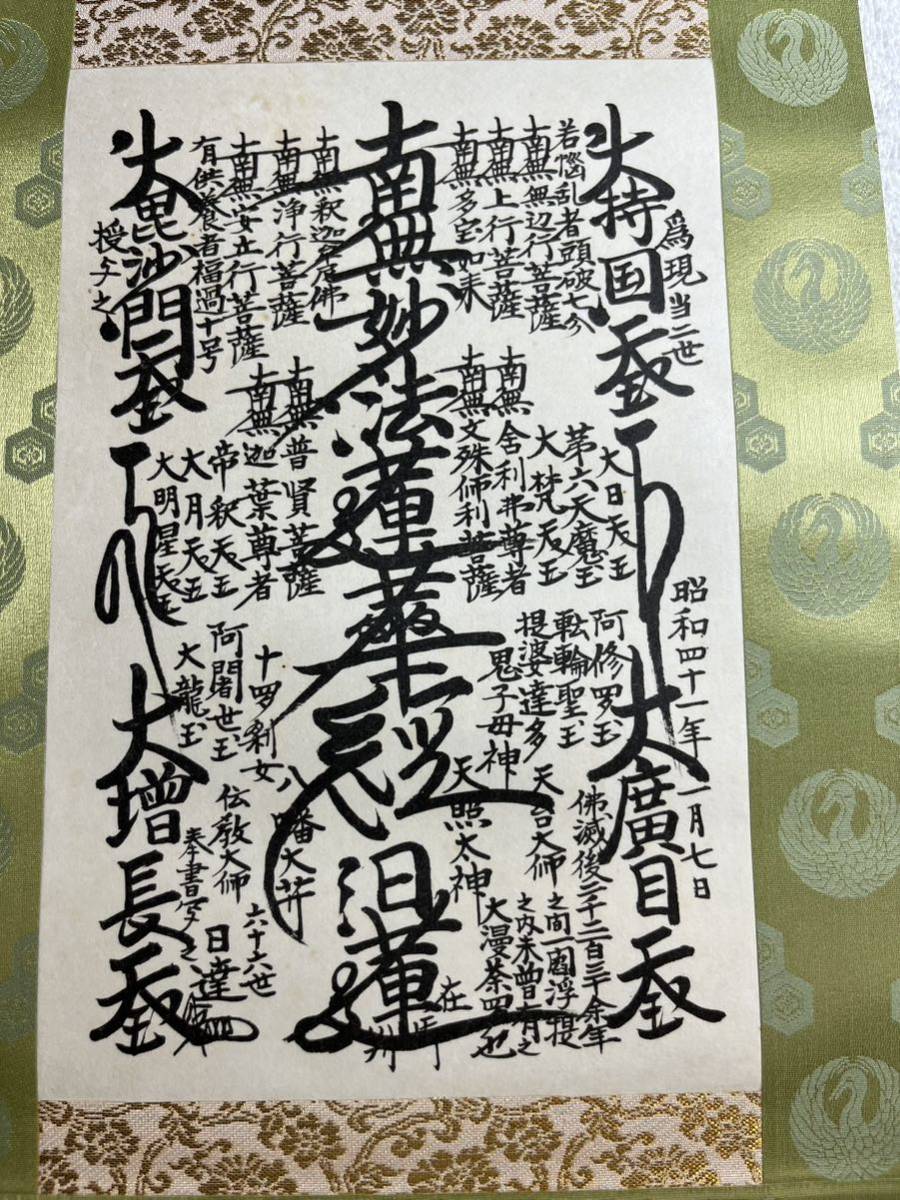 大持国天王
為現当二世
若悩乱者頭破七分
南無無辺行菩薩
南無上行菩薩
南無多宝如来
南無妙法蓮華経
日蓮
在御判
南無釈迦牟尼佛
南無浄行菩薩
南無安立行菩薩
有供養者福過十号
大毘沙門天王
授与之
大日天王
第六天魔王
大梵天王
南無舎利弗尊者
南無文殊師利菩薩
南無普賢菩薩
南無迦葉尊者
帝釈天王
大月天王
大明星天王
昭和四十一年一月七日
阿修羅王
転輪聖王
提婆達多
鬼子母神
十羅刹女
阿闍世王
大龍王
大廣目天王
佛滅後二千二百三十余年
之間一閻浮提
之内未曽有之
大漫荼羅也
天台大師
天照大神
八幡大菩薩
伝教大師
六十六世
日達
奉書写之
大増長天王